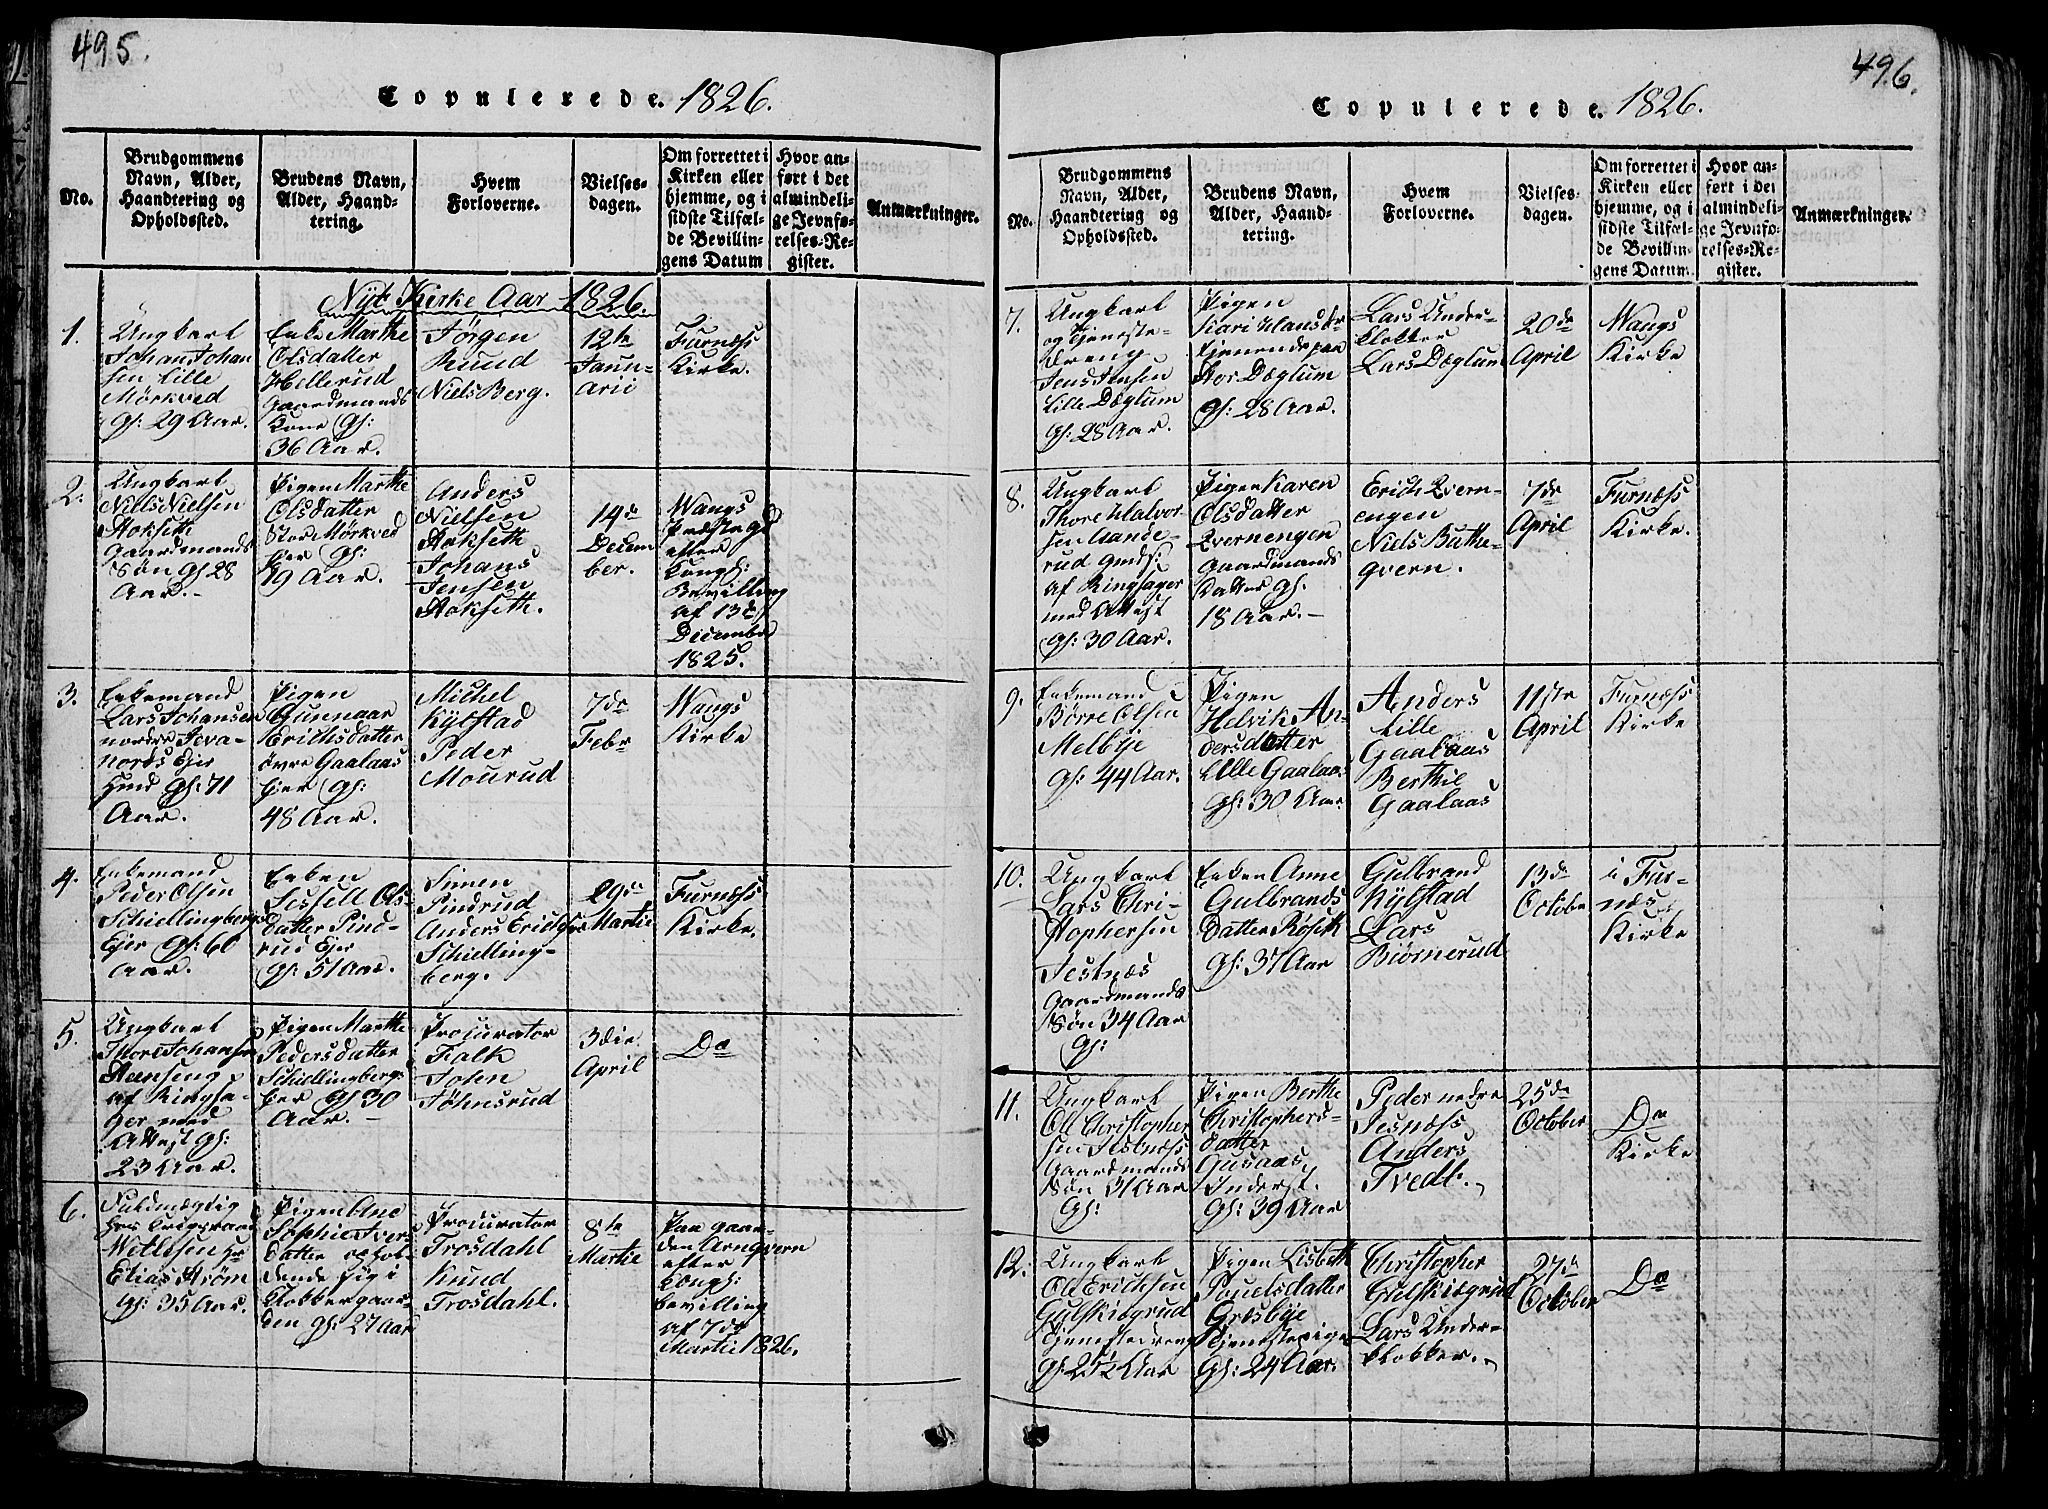 495.
Copulerede. 1826.
No.
Brudgommens
Navn, Alder,
Haandtering og
Opholdssted.
Brudens Navn,
Alder, Haand-
tering.
Hvem
Forloverne.
Vielses-
dagen.
Om forrettet i
Kirken eller
hjemme, og i
sidste Tilfæl-
de Bevillin-
gens Datum
Hvor an-
ført i det
almindeli-
ge Jevnfø-
relses-Re-
gister.
Anmærkninger.
Nÿt Kirke Aar 1826.
1.
Ungkarl
Johan Johan
sen Lille
Mörkved
Gl: 29 Aar.
Enke Marthe
Olsdatter
Hellerud
Gaardmands
Kone Gl:
36 Aar.
Jørgen
Ruud
Niels Berg.
12te
Janu-
arii
Furnæss
Kirke.
2.
Ungkarl
Niels Nielsen
Stokseth
Gaardmands
Søn Gl 28
Aar.-
Pigen Marthe
Olsdatter
Stor Mörkved
Gl:
19 Aar.
Anders
Nielsen
Stokseth
Johans
Jensen
Stokseth.
14de
Decem
ber.
Wangs
Præstegd
efter
Kongl:
Bevilling
af 13de
December
1825.
3.
Enkemand
Lars Johansen
nordre Jeva-
nords Ejer
Gl: 71
Aar.
Pigen
Gunnaar
Erichsdatter
øvre Gaalaas
Gl:
48 Aar.
Michel
Kÿlstad
Peder
Mourud
7de
Febr
Wangs
Kirke
4.
Enkemand
Peder Olsen
Schiellingbergs
Ejer Gl: 60
Aar.
Enken
Sessell Ols-
datter Pind-
rud Ejer
Gl: 51 Aar.
Simen
Pindrud
Anders Erichsen
Schielling-
berg.
29de
Martie
Furnæss
Kirke.
5.
Ungkarl
Thore Johansen
Steenseng
af Ringsa-
ger med
Attest Gl:
23 Aar.
Pigen Marthe
Pedersdatter
Schiellingbergs
Gl 30
Aar.-
Procurator
Falk
John
Johnsrud
3die
April
Do
6.
Fuldmægtig
hos Krigsraad
Witlesen Hr
Elias Strøm
Gl: 35 Aar.
Pigen Ane
Sophie Ivers
datter ophol-
dende sig i
Klokkergaar-
den Gl: 27 Aar
Procurator
Trosdahl
Knud
Trosdahl.
8te
Martie
Paa gaar-
den Arnqvern
efter
Kongl:
Bevilling
af 7de
Martie 1826.
496.
Copulerede. 1826.
No.
Brudgommens
Navn, Alder,
Haandtering og
Opholdssted.
Brudens Navn,
Alder, Haand-
tering.
Hvem
Forloverne.
Vielses-
dagen.
Om forrettet i
Kirken eller
hjemme, og i
sidste Tilfæl-
de Bevillin-
gens Datum.
Hvor an-
ført i det
almindeli-
ge Jevnfø-
relses-Re-
gister.
Anmærkninger.
7.
Ungkarl
og Tjeneste-
dreng
Jens Jensen
Lille Dæglum
Gl: 28 Aar.
Pigen
Kari Hansdr
tienende paa
Stor Dæglum
Gl: 28 Aar.
Lars Under-
klokker
Lars Dæglum
20de
April
Wangs
Kirke
8.
Ungkarl
Thore Halvor-
sen Aande-
rud Gmds:
af Ringsager
med Attest
Gl: 30 Aar.
Pigen Karen
Olsdatter
Qvernengen
Gaardmands
Datter Gl.
18 Aar.-
Erich Qvern-
engen
Niels Buthe-
qvern.
7de
April
Furnæss
Kirke.
9.
Enkemand
Børre Olsen
Melbÿe
Gl: 44 Aar.
Pigen
Helvik An-
dersdatter
Lille Gaalaas
Gl: 30 Aar
Anders
Lille
Gaalaas
Berthil
Gaalaas
11ste
April
Furnæss
Kirke
10.
Ungkarl
Lars Chri-
stophersen
Jestnæs
Gaardmands
Søn 34 Aar
Gl:
Enken Anne
Gulbrands
datter Røseth
Gl: 37 Aar
Gulbrand
Kÿlstad
Lars
Biørnerud
13de
Octobe
i Fur-
næs
Kirke
11.
Ungkarl
Ole Christopher
sen Jestnæss
Gaardmands
Søn 31 Aar
Gl:
Pigen Berthe
Christophers-
datter
Gusaas
Inderst.
Gl: 39 Aar
Peder nedre
Jesnæss
Anders
Tvedt.
25de
October
Do
Kirke
12.
Ungkarl
Ole Erichsen
Gulskiegrud
tjenestedreng
Gl. 25½ Aar
Pigen Lisbeth
Pouelsdatter
Gresbÿe
Tjenestepige
Gl: 24 Aar.
Christopher
Gulskiegrud
Lars Under-
klokker.
27de
October
Do